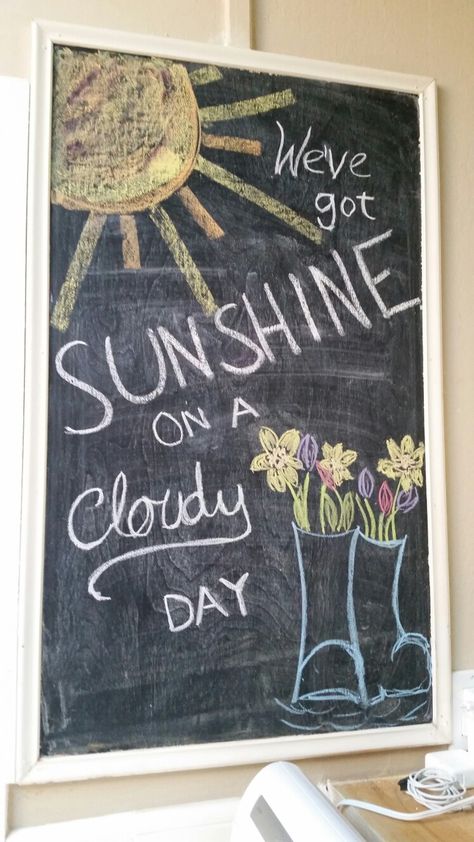 We've
got
SUNSHINE
ON A
Cloudy
DAY